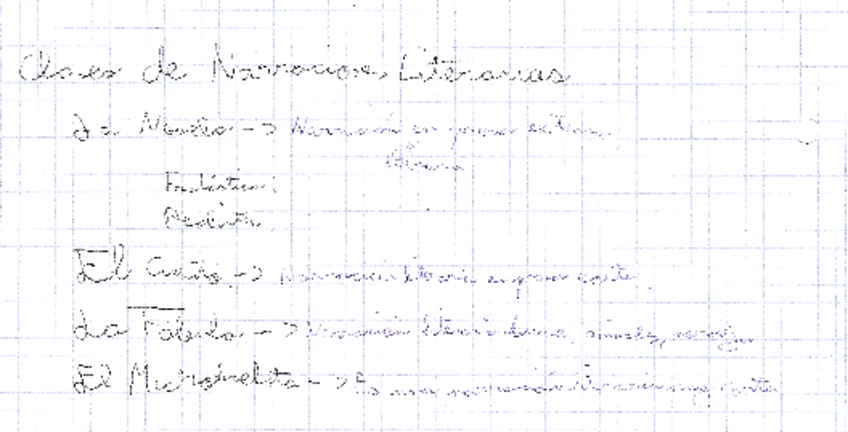 Clases de Narraciones Literarias
La Novela -> Narración en prosa extensa
literaria
Fantástica:
Realista
El Cuento -> Narración literaria en prosa corta
La Fábula -> Narración literaria animales, moraleja
El Microrrelato -> Es una narración literaria muy corta